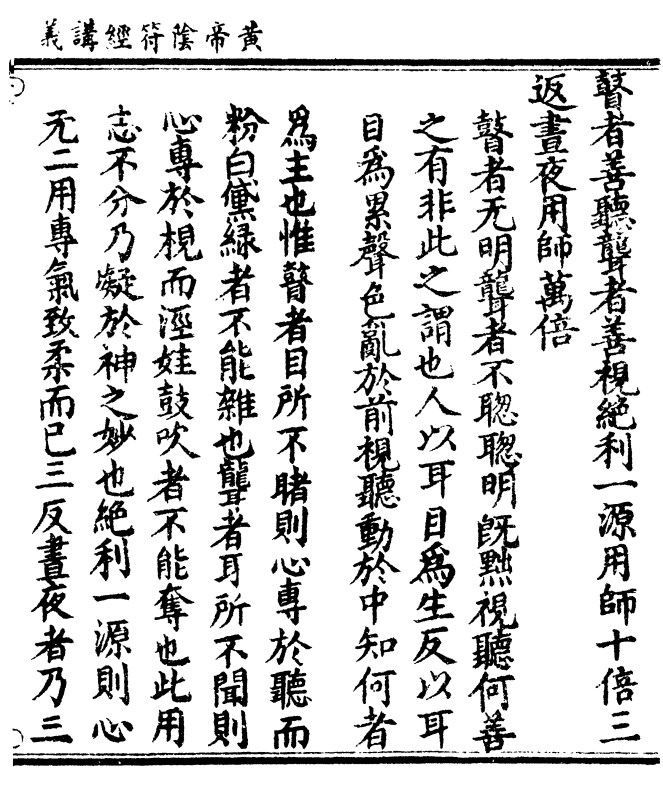 黃帝陰符經講義
瞽者善聽聾者善視絕利一源用師十倍三
返晝夜用師萬倍
瞽者无明聾者不聦聦明旣黜視聽何善
之有非此之謂也人以耳目爲生反以耳
目爲累聲色亂於前視聽動於中知何者
爲主也惟瞽者目所不睹則心專於聽而
粉白黛緑者不能雜也聾者耳所不聞則
心專於視而淫娃鼓吹者不能奪也此用
志不分乃凝於神之妙也絕利一源則心
无二用專氣致柔而已三反晝夜者乃三